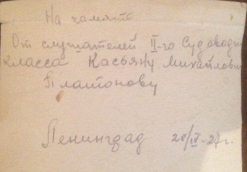 На память
От слушателей II-го Судоводит
класса Касьяну Михайлович
Платонову
Ленинград 20/IV-27 г.